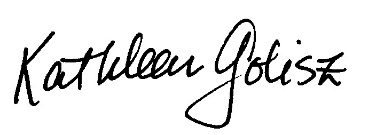 Kathleen Golisz